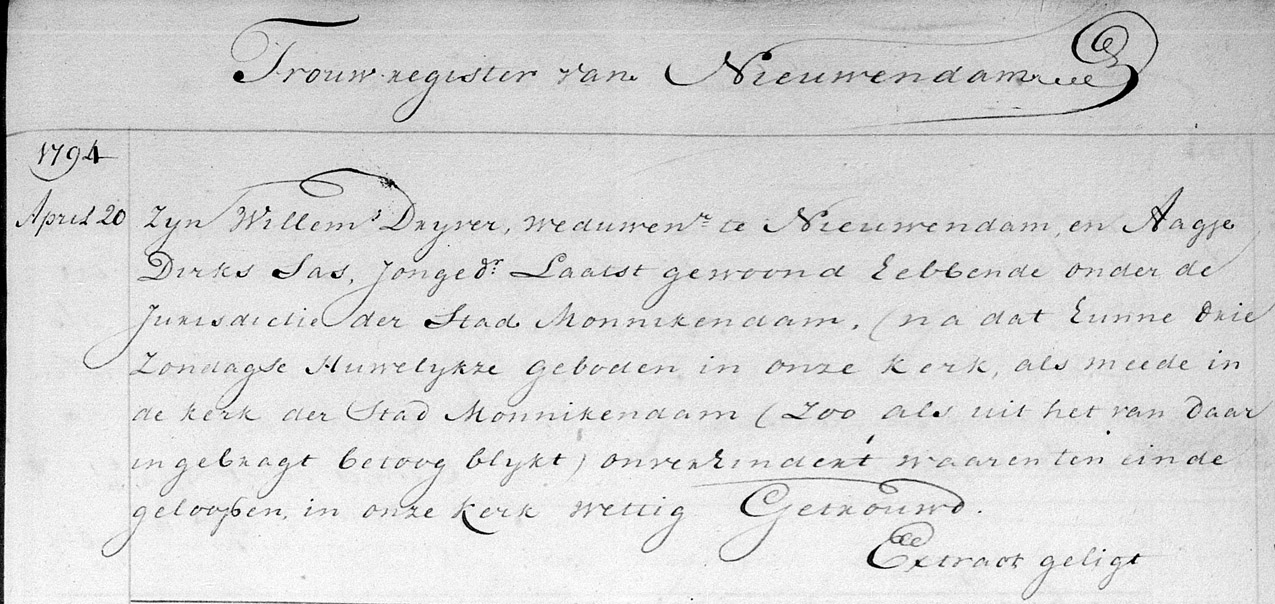 Trouw register van Nieuwendam
1794
April 20 Zyn Willem Dryver, weduwenr te Nieuwendam, en Aagje
Dirks Sas, Jongedr Laatst gewoond hebbende onder de
Jurisdictie der Stad Monnikendam, (na dat hunne drie
Zondagse Huwelykze geboden in onze Kerk, als meede in
de kerk der Stad Monnikendam (Zoo als uit het van daar
ingebragt betoog blykt) onverhindert waaren ten einde
geloopen, in onze Kerk wettig Getrouwd.
Extract geligt